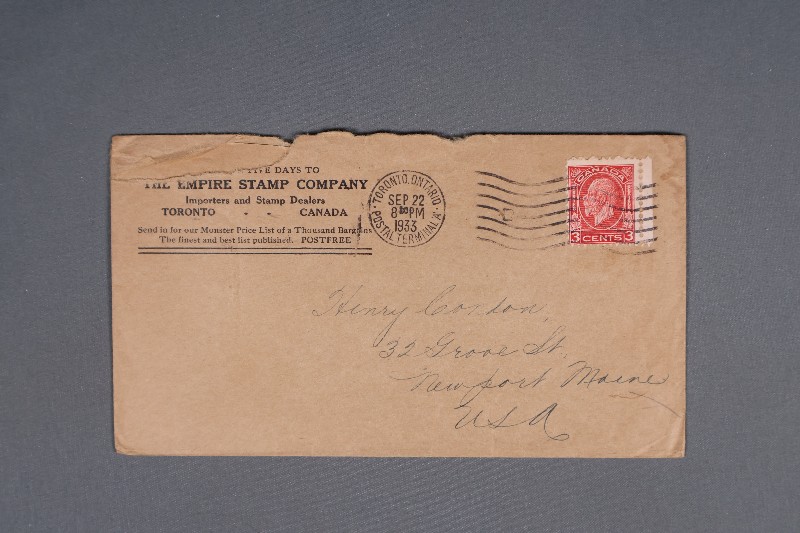 FIVE DAYS TO
THE EMPIRE STAMP COMPANY
Importers and Stamp Dealers
TORONTO - - CANADA
Send in for our Monster Price List of a Thousand Bargains
The finest and best list published. POSTFREE
TORONTO, ONTARIO
SEP 22
8 PM
1933
POSTAL TERMINAL A
CANADA
3 CENTS 3
Henry Condon,
32 Grove St.
Newport Maine
USA